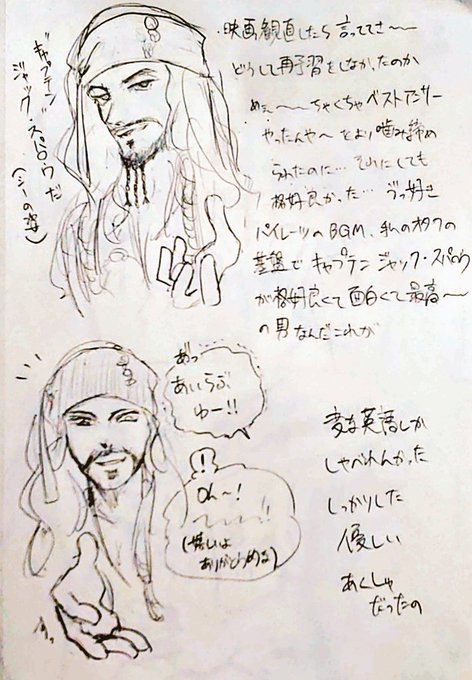 ・映画観直したら言っててさ〜〜
どうして再予習をしなかったのか
めぇ〜〜ちゃくちゃベストアンサー
やったんや〜とより噛み締め
られたのに…それにしても
格好良かった…ゔっ好き
パイレーツのBGM、私のオタクの
基盤でキャプテンジャック・スパロウ
が格好良くて面白くて最高〜
の男なんだこれが
キャプテン
ジャック・スパロウだ
(シーの姿)
あっ
あいらぶ
ゆー!!
!
Oh〜!
〜〜〜!!
(嬉しいよ
ありがとうめる)
変な英語しか
しゃべれんかった
しっかりした
優しい
あくしゅ
だったの